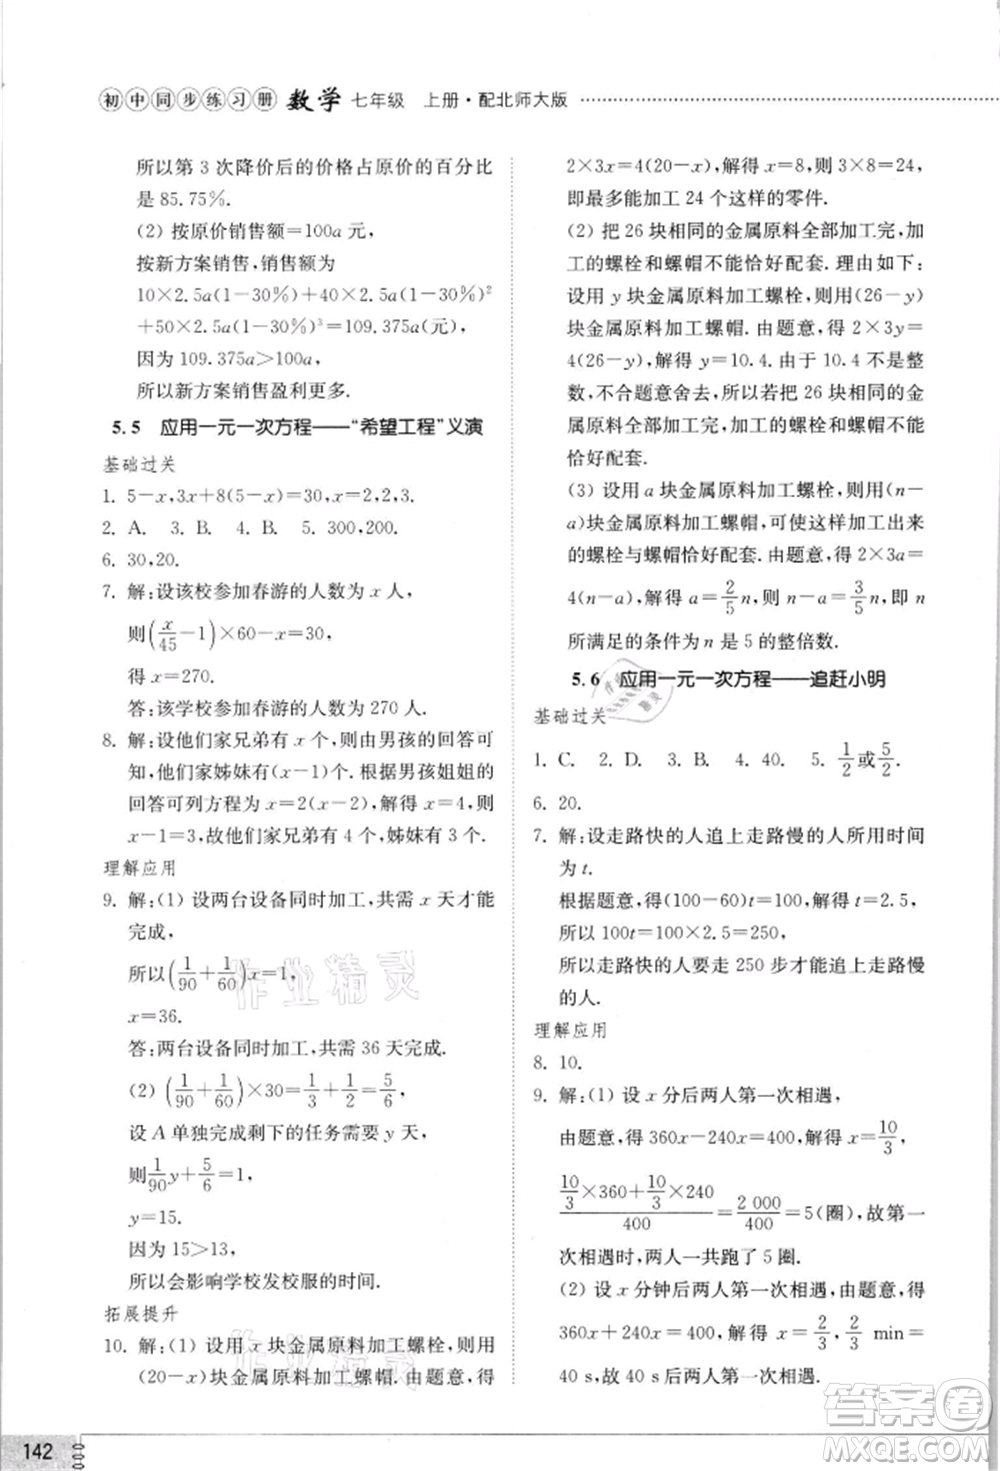 初中同步练习册 数学 七年级 上册·配北师大版
所以第 3 次降价后的价格占原价的百分比
是 85.75%.
(2) 按原价销售额=100a 元,
按新方案销售,销售额为
10×2.5a(1-30%)+40×2.5a(1-30%)²
+50×2.5a(1-30%)³=109.375a(元),
因为 109.375a>100a,
所以新方案销售盈利更多.
5.5 应用一元一次方程——“希望工程”义演
基础过关
1. 5-x,3x+8(5-x)=30,x=2,2,3.
2. A. 3. B. 4. B. 5. 300,200.
6. 30,20.
7. 解:设该校参加春游的人数为 x 人,
则(x/45-1)×60-x=30,
得 x=270.
答:该学校参加春游的人数为 270 人.
8. 解:设他们家兄弟有 x 个,则由男孩的回答可
知,他们家姊妹有(x-1)个.根据男孩姐姐的
回答可列方程为 x=2(x-2),解得 x=4,则
x-1=3,故他们家兄弟有 4 个,姊妹有 3 个.
理解应用
9. 解:(1) 设两台设备同时加工,共需 x 天才能
完成,
所以(1/90+1/60)x=1,
x=36.
答:两台设备同时加工,共需 36 天完成.
(2) (1/90+1/60)×30=1/3+1/2=5/6,
设 A 单独完成剩下的任务需要 y 天,
则1/90y+5/6=1,
y=15.
因为 15>13,
所以会影响学校发校服的时间.
拓展提升
10. 解:(1) 设用 x 块金属原料加工螺栓,则用
(20-x)块金属原料加工螺帽.由题意,得
2×3x=4(20-x),解得 x=8,则 3×8=24,
即最多能加工 24 个这样的零件.
(2) 把 26 块相同的金属原料全部加工完,加
工的螺栓和螺帽不能恰好配套.理由如下:
设用 y 块金属原料加工螺栓,则用(26-y)
块金属原料加工螺帽.由题意,得 2×3y=
4(26-y),解得 y=10.4.由于 10.4 不是整
数,不合题意舍去,所以若把 26 块相同的金
属原料全部加工完,加工的螺栓和螺帽不能
恰好配套.
(3) 设用 a 块金属原料加工螺栓,则用(n-
a)块金属原料加工螺帽,可使这样加工出来
的螺栓与螺帽恰好配套.由题意,得 2×3a=
4(n-a),解得 a=2/5n,则 n-a=3/5n,即 n
所满足的条件为 n 是 5 的整倍数.
5.6 应用一元一次方程——追赶小明
基础过关
1. C. 2. D. 3. B. 4. 40. 5. 1/2或5/2.
6. 20.
7. 解:设走路快的人追上走路慢的人所用时间
为 t.
根据题意,得(100-60)t=100,解得 t=2.5,
所以 100t=100×2.5=250,
所以走路快的人要走 250 步才能追上走路慢
的人.
理解应用
8. 10.
9. 解:(1) 设 x 分后两人第一次相遇,
由题意,得 360x-240x=400,解得 x=10/3,
(10/3×360+10/3×240)/400=2 000/400=5(圈),故第一
次相遇时,两人一共跑了 5 圈.
(2) 设 x 分钟后两人第一次相遇,由题意,得
360x+240x=400,解得 x=2/3,2/3 min=
40 s,故 40 s 后两人第一次相遇.
142
作业精灵
作业精灵
答案圈
MXQE.COM